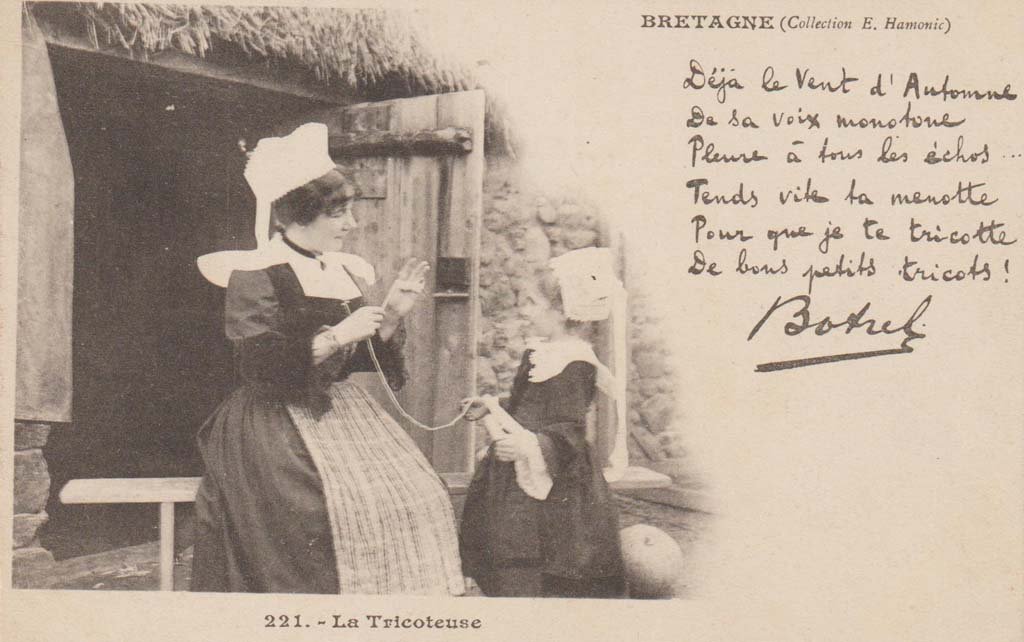 BRETAGNE (Collection E. Hamonic)
Déjà le Vent d'Automne
De sa voix monotone
Pleure à tous les échos ...
Tends vite ta menotte
Pour que je te tricotte
De bons petits tricots !
Botrel
221. - La Tricoteuse